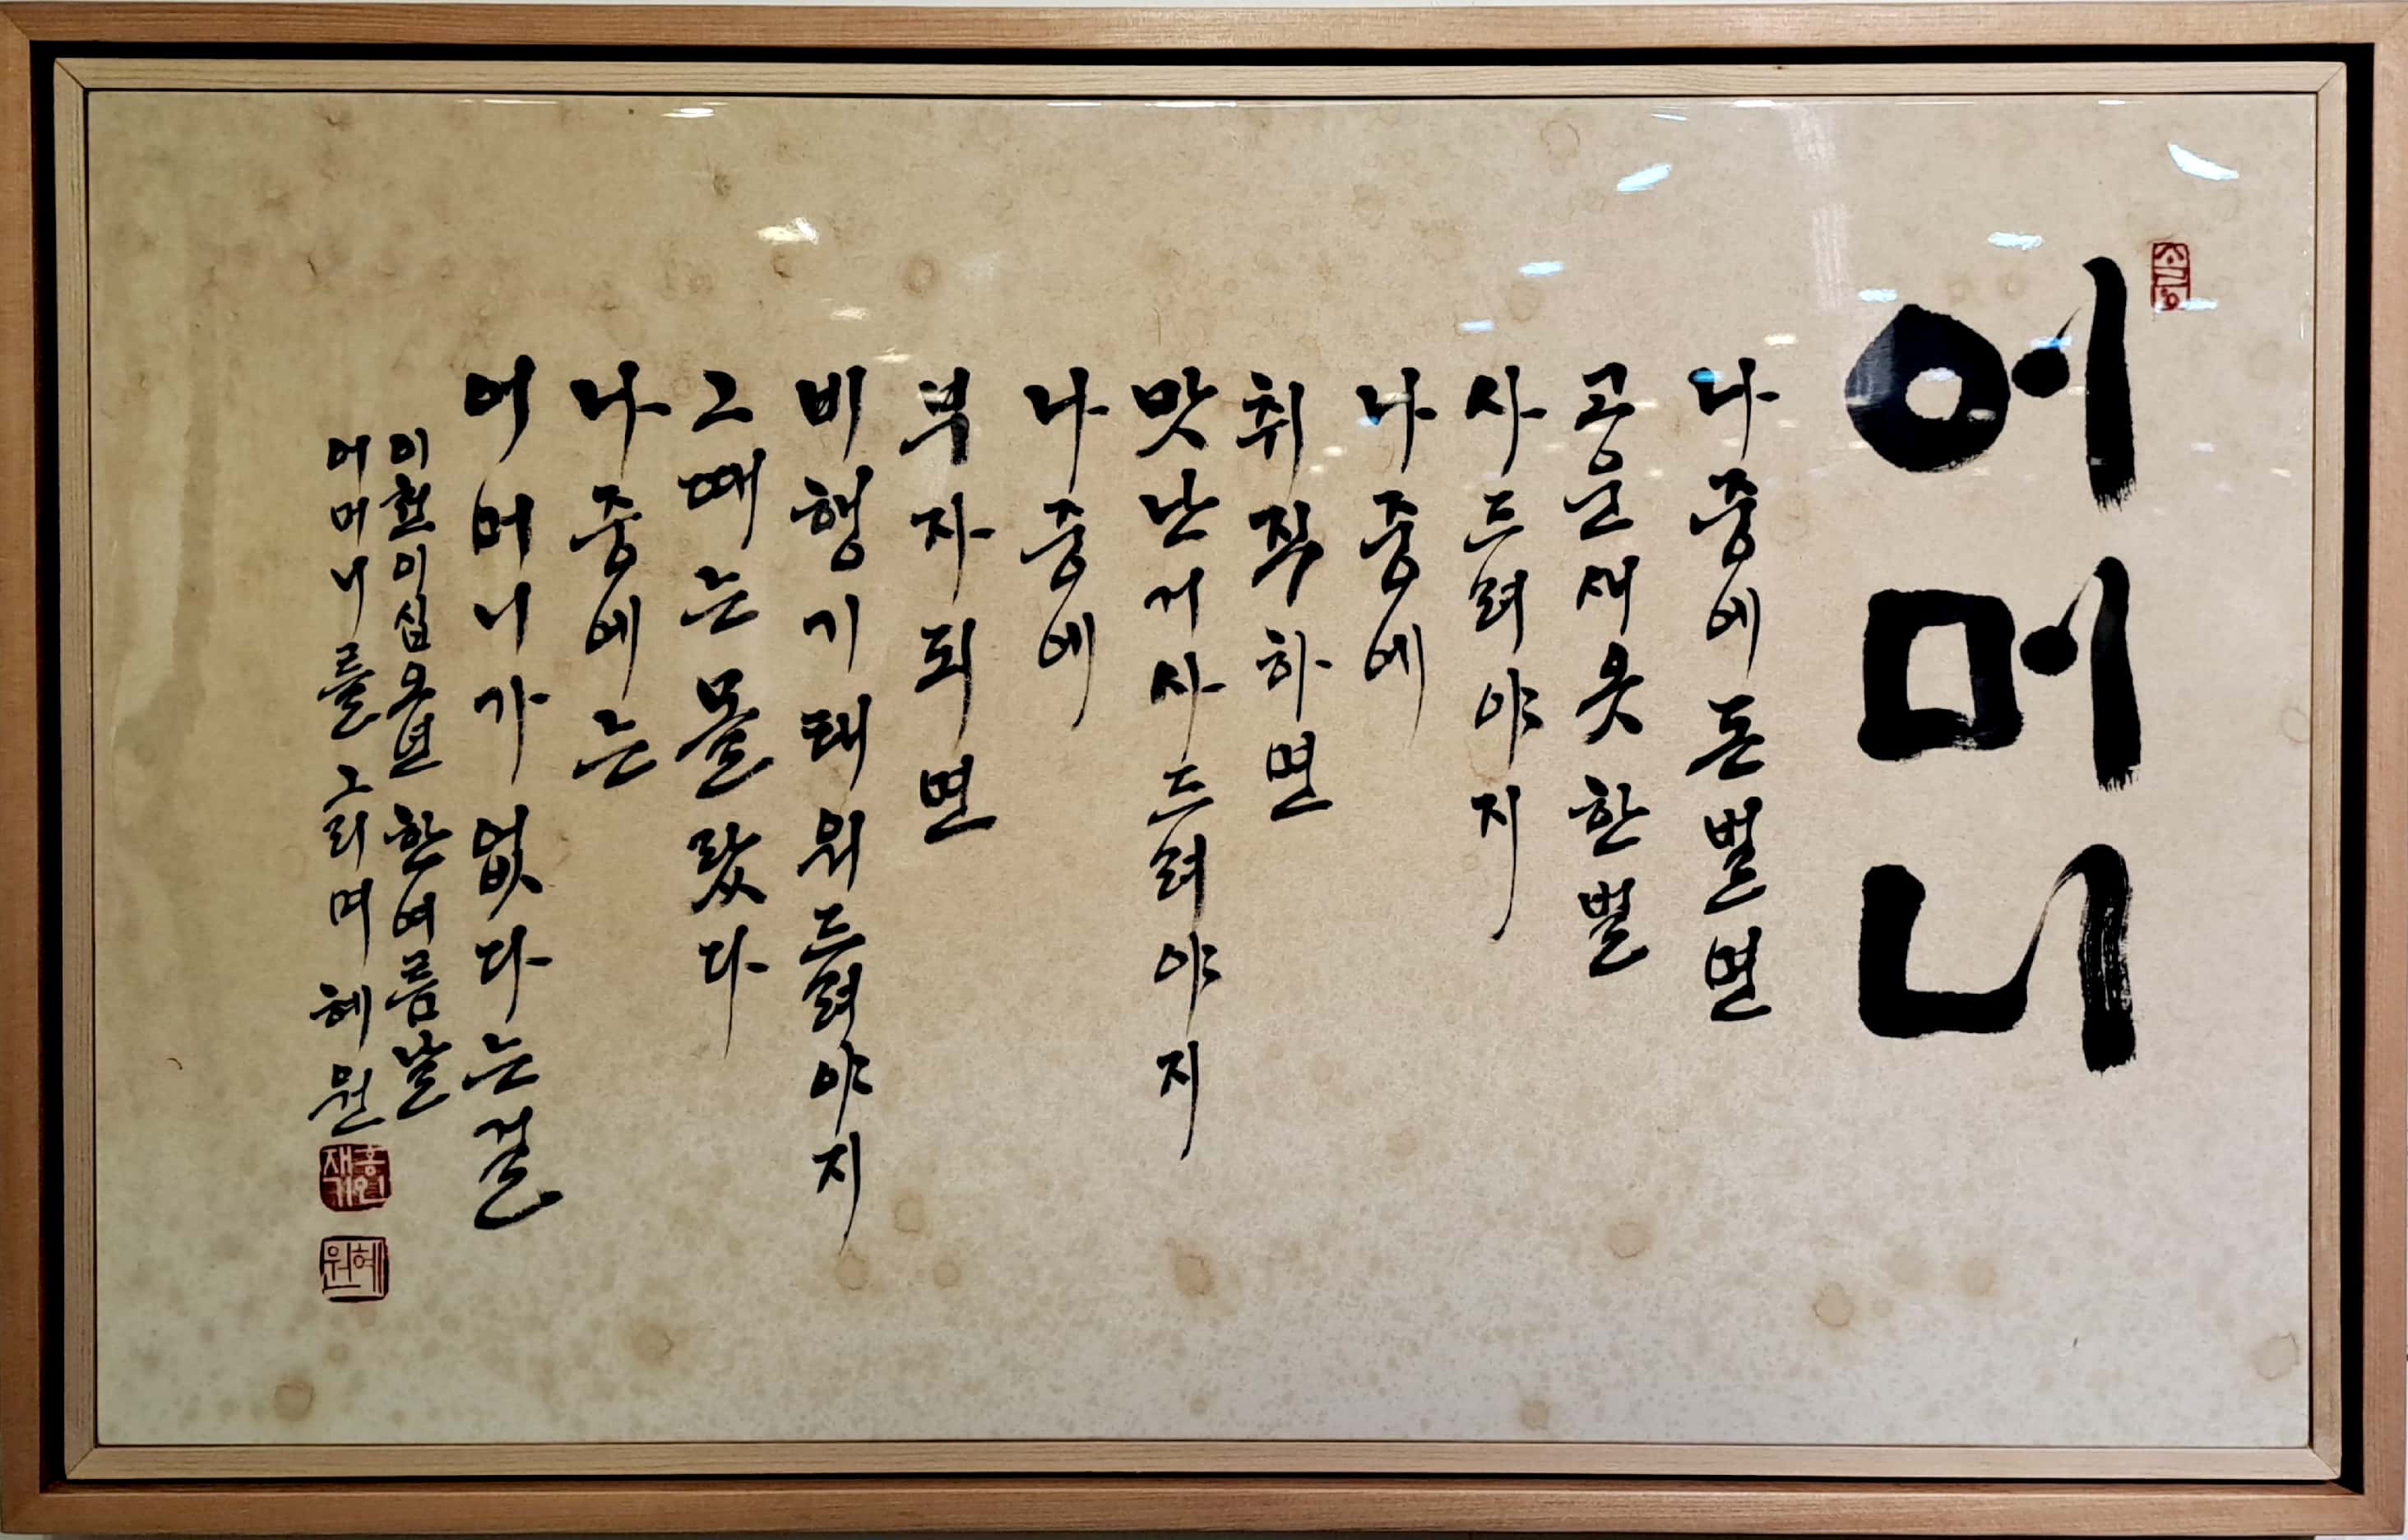 어머니
나중에 돈 벌면
고운 새 옷 한 벌
사드려야지
나중에
취직하면
맛난 거 사드려야지
나중에
부자 되면
비행기 태워 드려야지
그때는 몰랐다
나중에는
어머니가 없다는 걸
이천이십오년 한여름날
어머니를 그리며 혜원
혜원